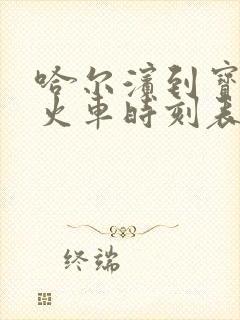 哈尔滨到宝
火车时刻表
终端